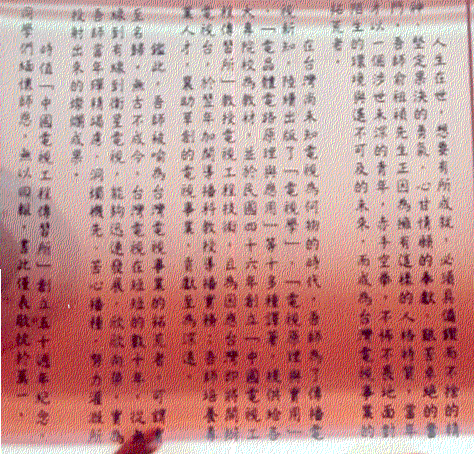 人生在世，想要有所成就，必須具備鍥而不捨的精
神、堅定果決的勇氣、心甘情願的奉獻、
門，吾師俞祖頑先生正因為擁有這樣的人格特質，當年
才以一個涉世未深的青年，赤手空拳，不怖不畏地面對
陌生的環境與遙不可及的未來，而成為台灣電視事業的
拓荒者。
在台灣尚未知電視為何物的時代，吾師為了傳播電
視新知，陸續出版了「電視學」、「電視原理與實用」、
「電晶體電路原理與應用」等十多種譯著，提供給各
大專院校為教材，並於民國四十六年創立「中國電視工
程傳習所」教授電視工程技術，且為因應台灣即將開辦
電視台，於翌年加開導播科教授導播實務，吾師培養專
業人才，襄助草創的電視事業，貢獻至為深遠。
鑑此，吾師被喻為台灣電視事業的拓荒者，可謂實
至名歸，無古不成今，台灣電視在短短的數十年，從無
線到有線到衛星電視，能夠迅速發展、欣欣向榮，實為
吾師當年殫精竭慮、洞燭機先、苦心播種、努力灌溉所
投射出來的燦爛成果。
時值「中國電視工程傳習所」創立五十週年紀念，
同學們緬懷師恩，無以回報，書此僅表敬意於萬一。